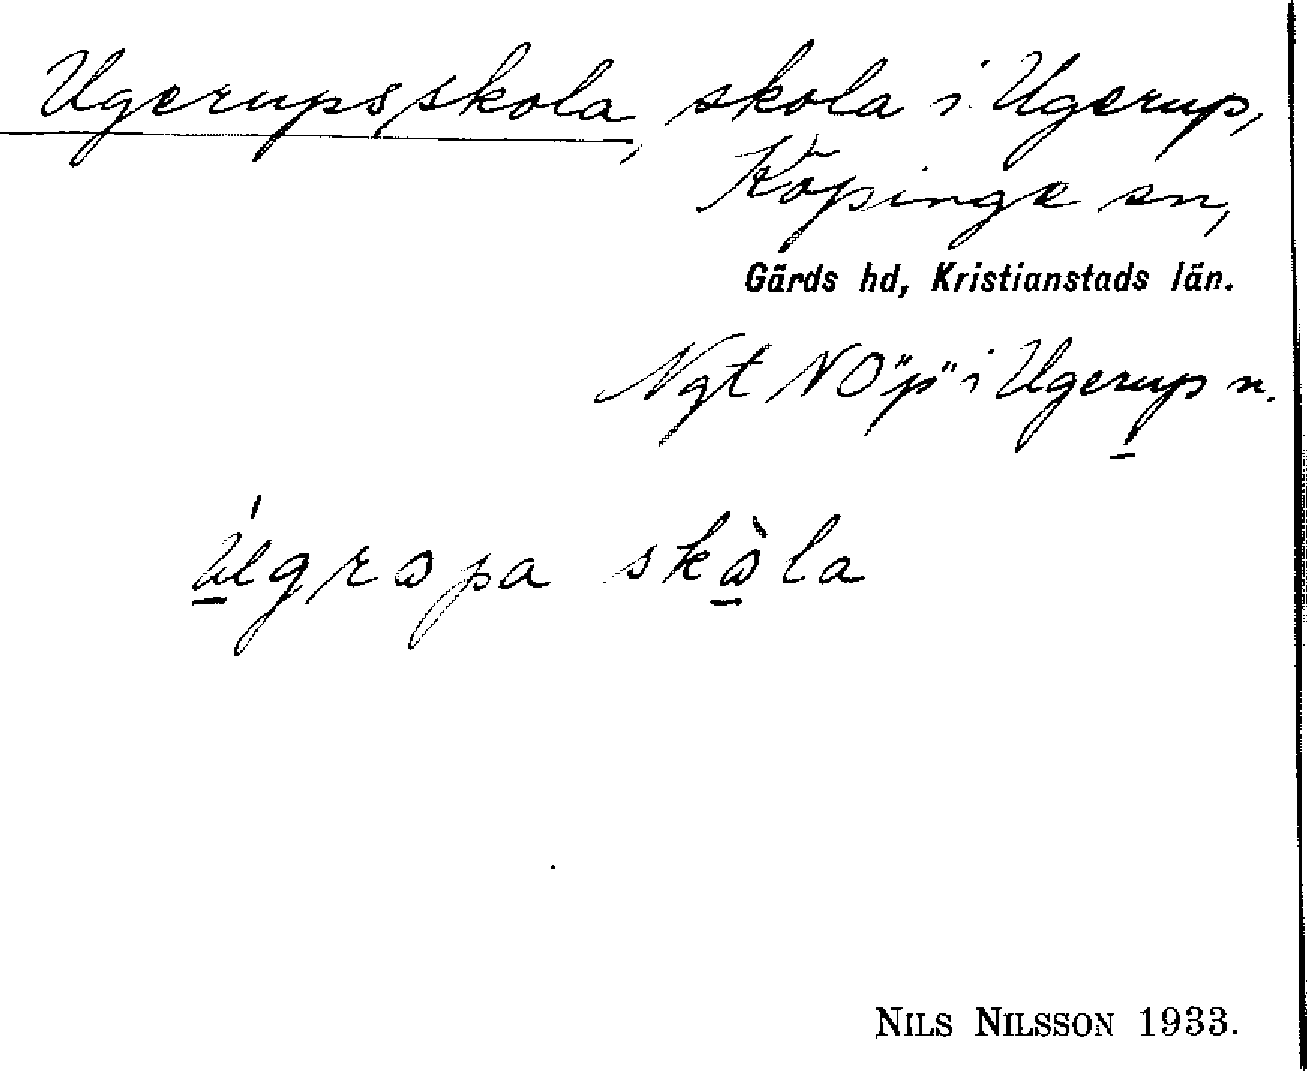 Ugerupsskola, skola i Ugerup,
Köpinge sn,
Gärds hd, Kristianstads län.
Ngt NO "p" i Ugerup n.
úgrapa skàla
NILS NILSSON 1933.